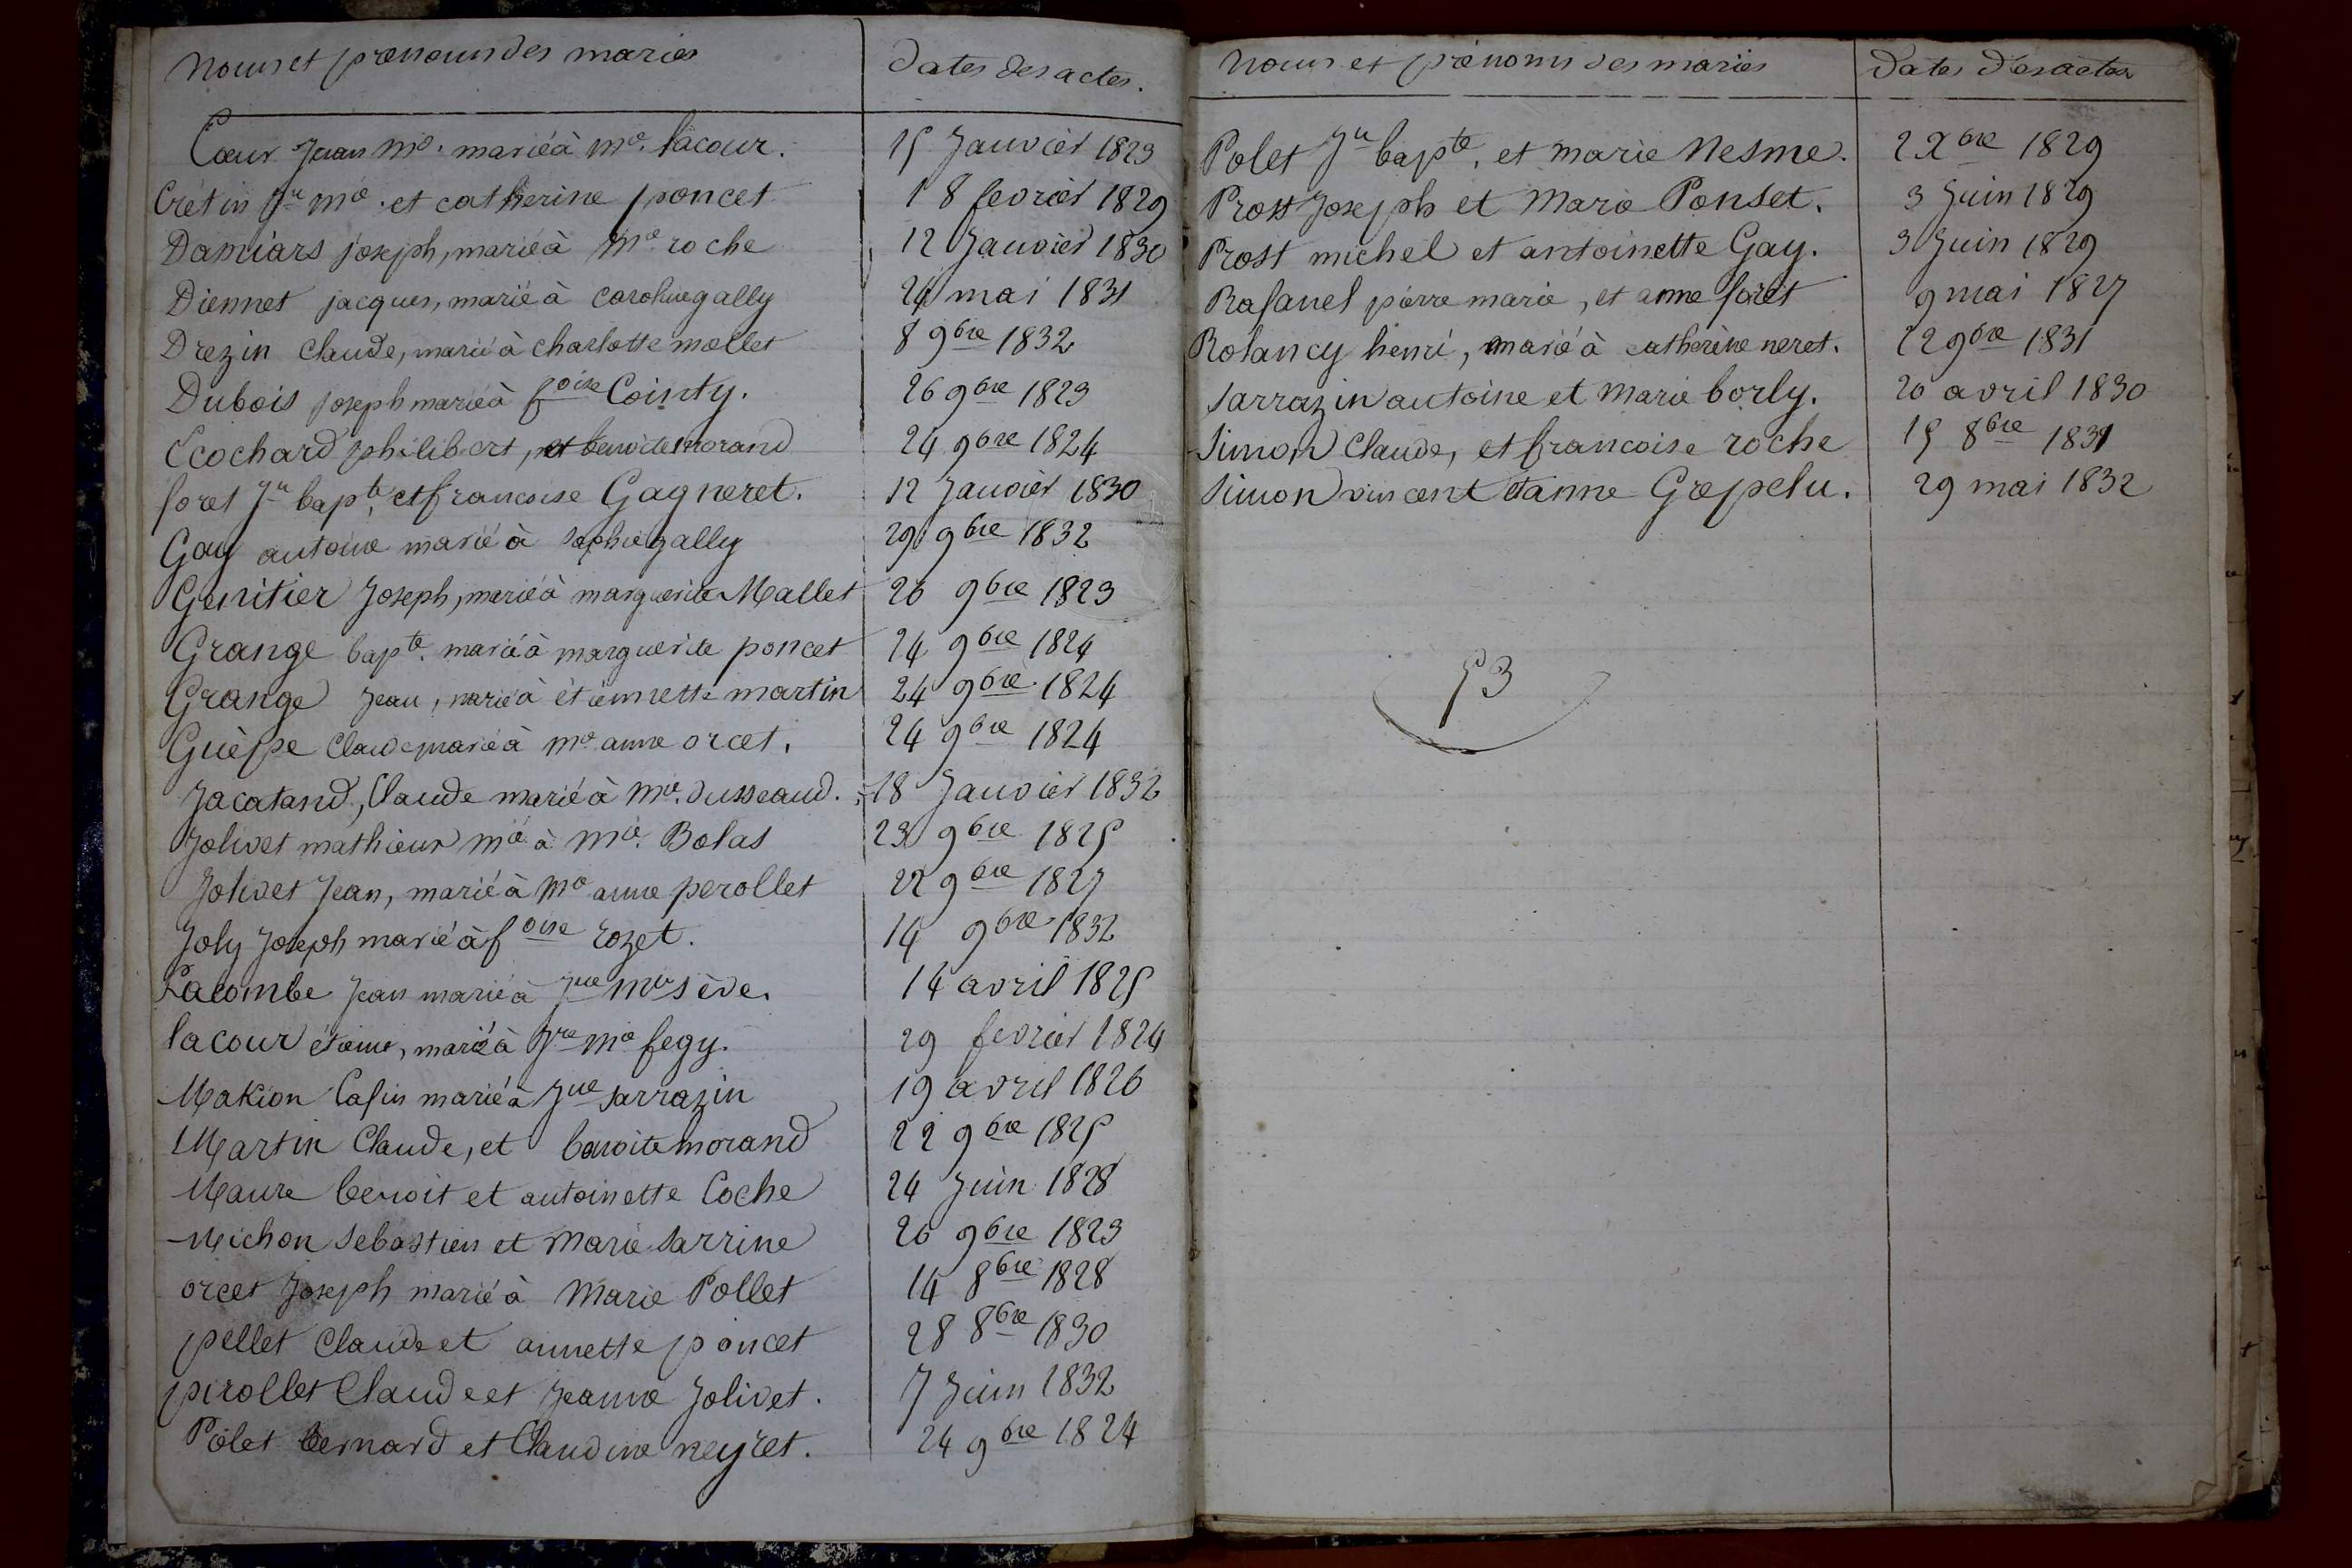 Noms et prenoms des mariés Dates des actes.
Cœur Jean Mie. marié à Mie. lacour. 15 Janvier 1823
Crétin Jn mie. et catherine poncet 18 fevrier 1829
Damiars joseph, marié à Mie roche 12 Janvier 1830
Diennet jacques, marié à caroline gally 24 mai 1831
Drezin Claude, marié à charlotte mollet 8 9bre 1832
Dubois joseph marié à foise Cointy. 26 9bre 1823
Ecochard philibert, et benoite morand 24 9bre 1824
foret Jn bapte. et francoise Gagneret. 12 Janvier 1830
Gay antoine marié à sophie gally 29 9bre 1832
Genitier Joseph, marié à marguerite Mallet 26 9bre 1823
Grange bapte. marié à marguerite poncet 24 9bre 1824
Grange Jean, marié à étiennette martin 24 9bre 1824
Guèpe Claude marié à mie anne orcet. 24 9bre 1824
Jacatand, Claude marié à Mie. dusseaud. 18 Janvier 1832
Jolivet mathieu mié à Mie. Bolas 23 9bre 1825
Jolivet Jean, marié à Mie anne perollet 22 9bre 1827
Joly Joseph marié à foise rozet. 14 9bre 1832
Lacombe Jean marié à Jne Mie sève. 14 avril 1825
lacour étienne, marié à Jne Mie fegy. 29 fevrier 1824
Makion Casin marié à Jne sarrazin 19 avril 1826
Martin Claude, et benoite morand 22 9bre 1825
Maure benoit et antoinette Coche 24 Juin 1828
Michon sebastien et Marie sarrine 26 9bre 1823
orcet Joseph marié à Marie Pollet 14 8bre 1828
pellet Claude et annette poncet 28 8bre 1830
pirollet Claude et Jeanne Jolivet. 7 Juin 1832
Polet bernard et Claudine neyret. 24 9bre 1824
Noms et prénoms des mariés Dates des actes
Polet Jn bapte, et marie Nesme. 2 Xbre 1829
Prost Joseph et Marie Ponset. 3 Juin 1829
Prost michel et antoinette Gay. 3 Juin 1829
Rafanel pierre marie, et anne forêt 9 mai 1827
Rolancy henri, marié à catherine neret. 12 9bre 1831
sarrazin antoine et Marie borly. 20 avril 1830
simon Claude, et francoise roche 15 8bre 1831
simon vincent et anne Grepelu. 29 mai 1832
53